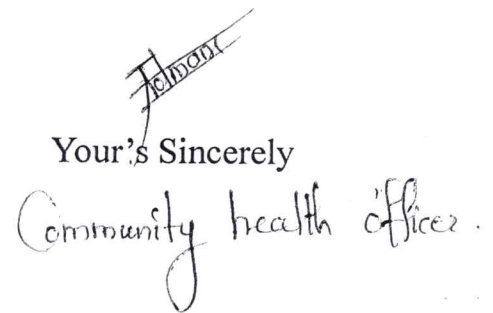 Your's Sincerely
Community health officer.